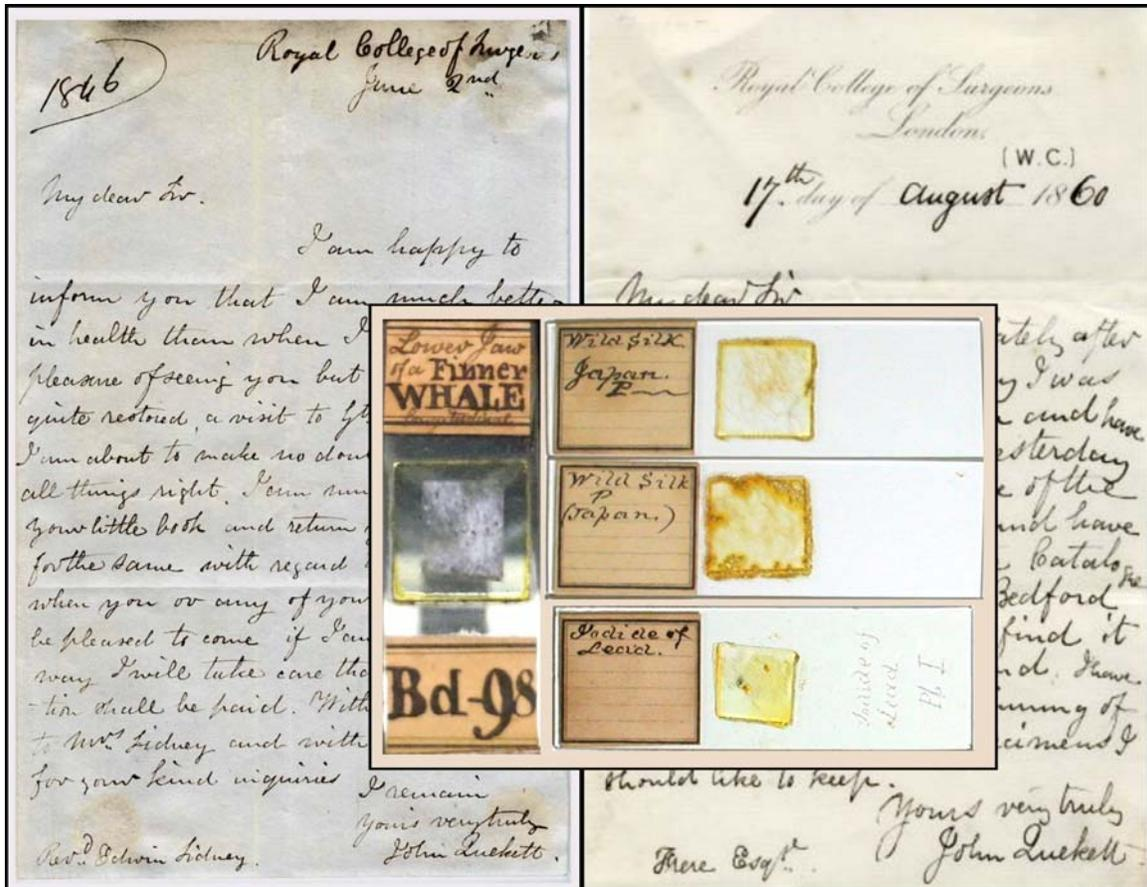 1846
Royal College of Surgeons
June 2nd
My dear Sir.
I am happy to
inform you that I am much better
in health than when I
pleasure of seeing you but
quite restored, a visit to
I am about to make no
all things right. I am
your little book and return
for the same with regard
when you or any of your
be pleased to come if I am
way I will take care
-tion shall be paid. With
to Mrs Sidney and with
for your kind inquiries
I remain
yours very truly
John Quekett.
Revd. Edwin Sidney.
Royal College of Surgeons
London.
(W.C.)
17th day of August 1860
My dear Sir
after
I was
and have
esterday
of the
and have
Catalogue
Bedford
find it
I have
of
I
should like to keep.
Yours very truly
John Quekett
Frere Esqre.
Lower Jaw
of a Finner
WHALE
Longitudinal
Bd-98
Wild Silk.
Japan.
P
Wild Silk
P
(Japan.)
Iodide of
Lead.
Iodide of
Lead
Pl I